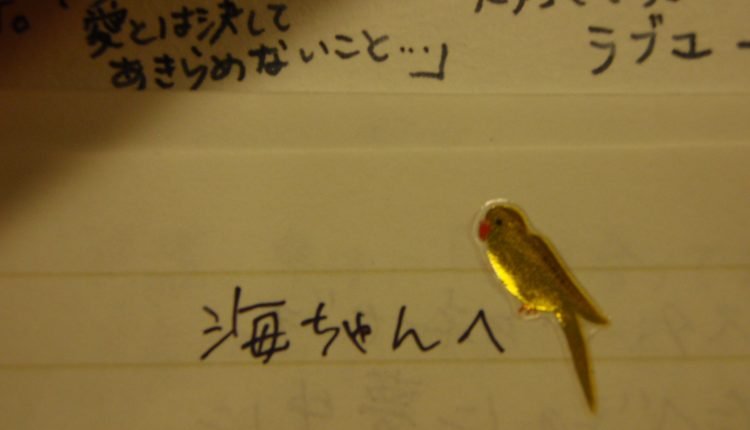 愛とは決して
あきらめないこと…」
ラブユー
海ちゃんへ